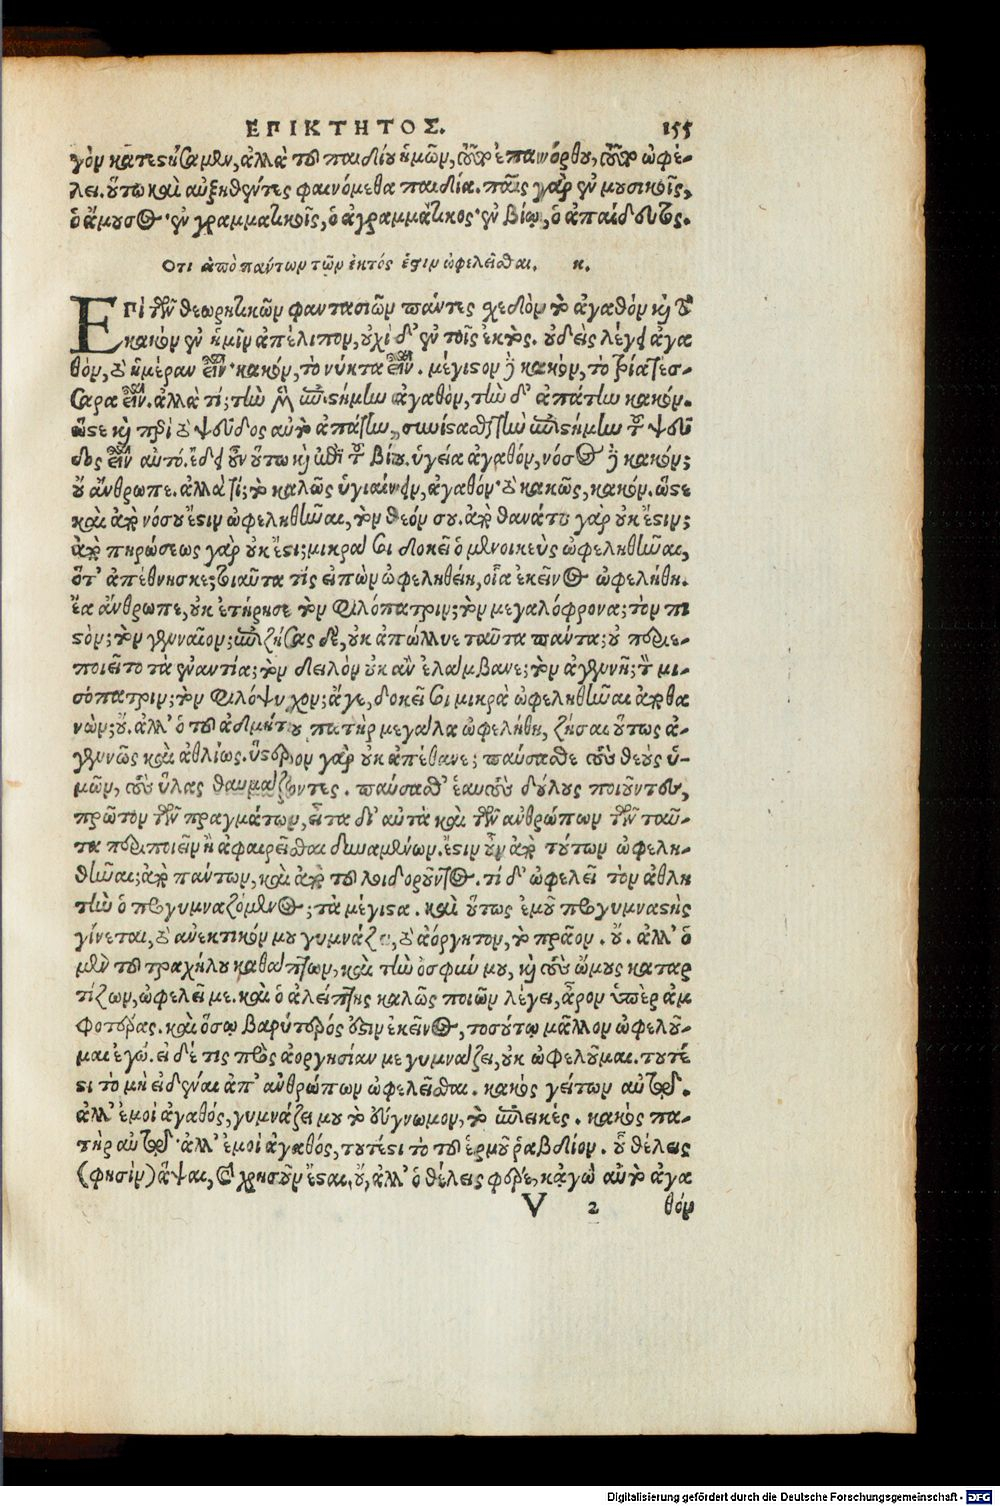 ΕΠΙΚΤΗΤΟΣ. 155
γὸν κατεσθίσαμεν, ἀλλὰ τοῦ παιδίου ἡμῶν, τοῦτο ἐπανόρθου, τοῦτο ὠφέ-
λει. οὕτω καὶ αὐξηθέντες φαινόμεθα παιδία. παῖς γὰρ ἐν μουσικοῖς,
ὁ ἄμουσος· ἐν γραμματικοῖς, ὁ ἀγραμμάτικος· ἐν βίῳ, ὁ ἀπαίδευτος.
Οτι ἀπὸ πάντων τῶν ἐκτός ἐστιν ὠφελεῖσθαι. κ.
ΕΠὶ τῶν θεωρητικῶν φαντασιῶν πάντες σχεδὸν τὸ ἀγαθὸν καὶ τὸ
κακὸν ἐν ἡμῖν ἀπέλιπον, οὐχὶ δ' ἐν τοῖς ἐκτός. οὐδεὶς λέγει ἀγα
θὸν, τὸ ἡμέραν εἶναι· κακόν, τὸ νύκτα εἶναι. μέγιστον δὲ κακὸν, τὸ τρία τέσ-
σαρα εἶναι. ἀλλὰ τί; τὴν μὲν ἐπιστήμην ἀγαθὸν, τὴν δ' ἀπάτην κακόν.
ὥστε καὶ περὶ τὸ ψεῦδος αὐτὸ ἀπάτην, συνίστασθαι τὴν ἐπιστήμην τοῦ ψεῦ
δος εἶναι αὐτό. ἔδει οὖν οὕτω καὶ ἐπὶ τοῦ βίου. ὑγεία ἀγαθόν, νόσος δὲ κακόν;
οὔ ἄνθρωπε. ἀλλὰ τί; τὸ καλῶς ὑγιαίνειν, ἀγαθόν· τὸ κακῶς, κακόν. ὥστε
καὶ ἀπὸ νόσου ἔστιν ὠφεληθῆναι, τὸν θεόν σου. ἀπὸ θανάτου γὰρ οὐκ ἔστιν;
ἀπὸ πηρώσεως γὰρ οὐκ ἔστι; μικρά σοι δοκεῖ ὁ μενοικεὺς ὠφεληθῆναι,
ὅτ' ἀπέθνησκε; τοιαῦτα τίς εἰπὼν ὠφεληθείη, οἷα ἐκεῖνος ὠφελήθη.
ἔα ἄνθρωπε, οὐκ ἐτήρησε τὸν φιλόπατριν; τὸν μεγαλόφρονα; τὸν πι
στὸν; τὸν γενναῖον; ἐπιζήσας δὲ, οὐκ ἀπώλλυε ταῦτα πάντα; οὐ περιε-
ποιεῖτο τὰ ἐναντία; τὸν δειλὸν οὐκ ἂν ἐλάμβανε; τὸν ἀγεννῆ; τὸν μι-
σόπατριν; τὸν φιλόψυχον; ἄγε, δοκεῖ σοι μικρὰ ὠφεληθῆναι ἀποθα
νών; οὔ. ἀλλ' ὁ τοῦ ἀδμήτου πατὴρ μεγάλα ὠφελήθη, ζήσας οὕτως ἀ-
γεννῶς καὶ ἀθλίως. ὕστερον γὰρ οὐκ ἀπέθανε; παύσασθε τοὺς θεοὺς ὑ-
μῶν, τοὺς ὕλας θαυμάζοντες. παύσασθ' ἑαυτοὺς δούλους ποιοῦντες,
πρῶτον τῶν πραγμάτων, εἶτα δι' αὐτὰ καὶ τῶν ἀνθρώπων τῶν ταῦ-
τα περιποιεῖν ἢ ἀφαιρεῖσθαι δυναμένων. ἔστιν οὖν ἀπὸ τούτων ὠφελη-
θῆναι; ἀπὸ πάντων, καὶ ἀπὸ τοῦ λοιδοροῦντος. τί δ' ὠφελεῖ τὸν ἀθλη
τὴν ὁ προγυμναζόμενος; τὰ μέγιστα. καὶ οὕτως ἐμοῦ προγυμναστὴς
γίνεται, τὸ ἀνεκτικόν μου γυμνάζει, τὸ ἀόργητον, τὸ πρᾶον. οὔ. ἀλλ' ὁ
μὲν τοῦ τραχήλου καθάπτων, καὶ τὴν ὀσφύν μου, καὶ τοὺς ὤμους καταρ
τίζων, ὠφελεῖ με. καὶ ὁ ἀλείπτης καλῶς ποιῶν λέγει, ἆρον ὑπὲρ ἀμ
φοτέρας. καὶ ὅσῳ βαρύτερός ἐστιν ἐκεῖνος, τοσούτῳ μᾶλλον ὠφελοῦ-
μαι ἐγώ. εἰ δέ τις πρὸς ἀοργησίαν με γυμνάζει, οὐκ ὠφελοῦμαι. τουτέ
στι τὸ μὴ εἰδέναι ἀπ' ἀνθρώπων ὠφελεῖσθαι. κακὸς γείτων αὐτῷ.
ἀλλ' ἐμοὶ ἀγαθός, γυμνάζει μου τὸ εὔγνωμον, τὸ ἐπιεικές. κακὸς πα-
τὴρ αὐτῷ· ἀλλ' ἐμοὶ ἀγαθός, τουτέστι τὸ τοῦ ἑρμοῦ ῥαβδίον. οὗ θέλεις
(φησὶν) ἅψαι, καὶ χρυσοῦν ἔσται, οὔ, ἀλλ' ὃ θέλεις φέρε, κἀγὼ αὐτὸ ἀγα
V 2 θόν
Digitalisierung gefördert durch die Deutsche Forschungsgemeinschaft - DFG